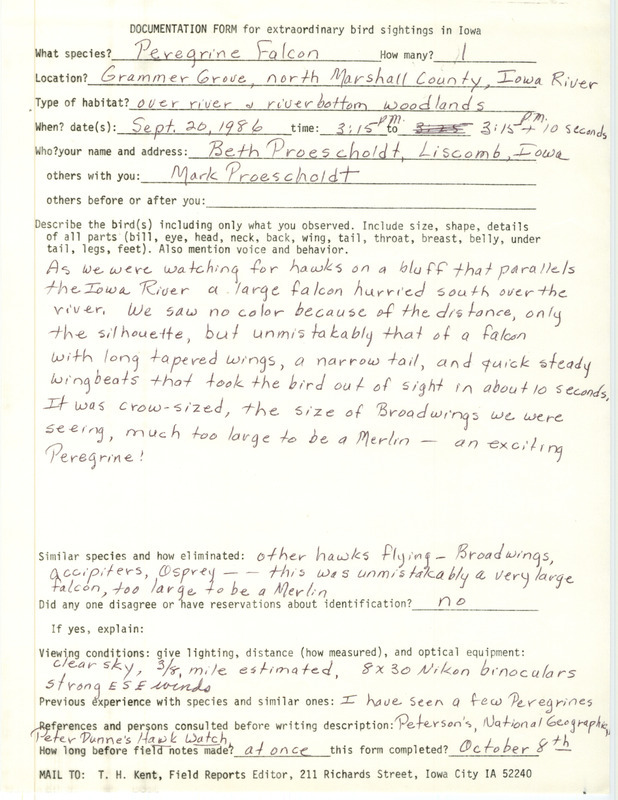 DOCUMENTATION FORM for extraordinary bird sightings in Iowa
What species? Peregrine Falcon How many? 1
Location? Grammer Grove, north Marshall County, Iowa River
Type of habitat? over river & riverbottom woodlands
When? date(s): Sept. 20, 1986 time: 3:15 P.M. to 3:15 P.M. + 10 seconds
Who?your name and address: Beth Proescholdt, Liscomb, Iowa
others with you: Mark Proescholdt
others before or after you:
Describe the bird(s) including only what you observed. Include size, shape, details
of all parts (bill, eye, head, neck, back, wing, tail, throat, breast, belly, under
tail, legs, feet). Also mention voice and behavior.
As we were watching for hawks on a bluff that parallels
the Iowa River a large falcon hurried south over the
river. We saw no color because of the distance, only
the silhouette, but unmistakably that of a falcon
with long tapered wings, a narrow tail, and quick steady
wingbeats that took the bird out of sight in about 10 seconds.
It was crow-sized, the size of Broadwings we were
seeing, much too large to be a Merlin — an exciting
Peregrine!
Similar species and how eliminated: other hawks flying — Broadwings,
accipiters, Osprey — — this was unmistakably a very large
falcon, too large to be a Merlin
Did any one disagree or have reservations about identification? no
If yes, explain:
Viewing conditions: give lighting, distance (how measured), and optical equipment:
clear sky, 3/8 mile estimated, 8x30 Nikon binoculars
strong ESE winds
Previous experience with species and similar ones: I have seen a few Peregrines
References and persons consulted before writing description: Peterson's, National Geographic,
Peter Dunne's Hawk Watch,
How long before field notes made? at once this form completed? October 8th
MAIL TO: T. H. Kent, Field Reports Editor, 211 Richards Street, Iowa City IA 52240